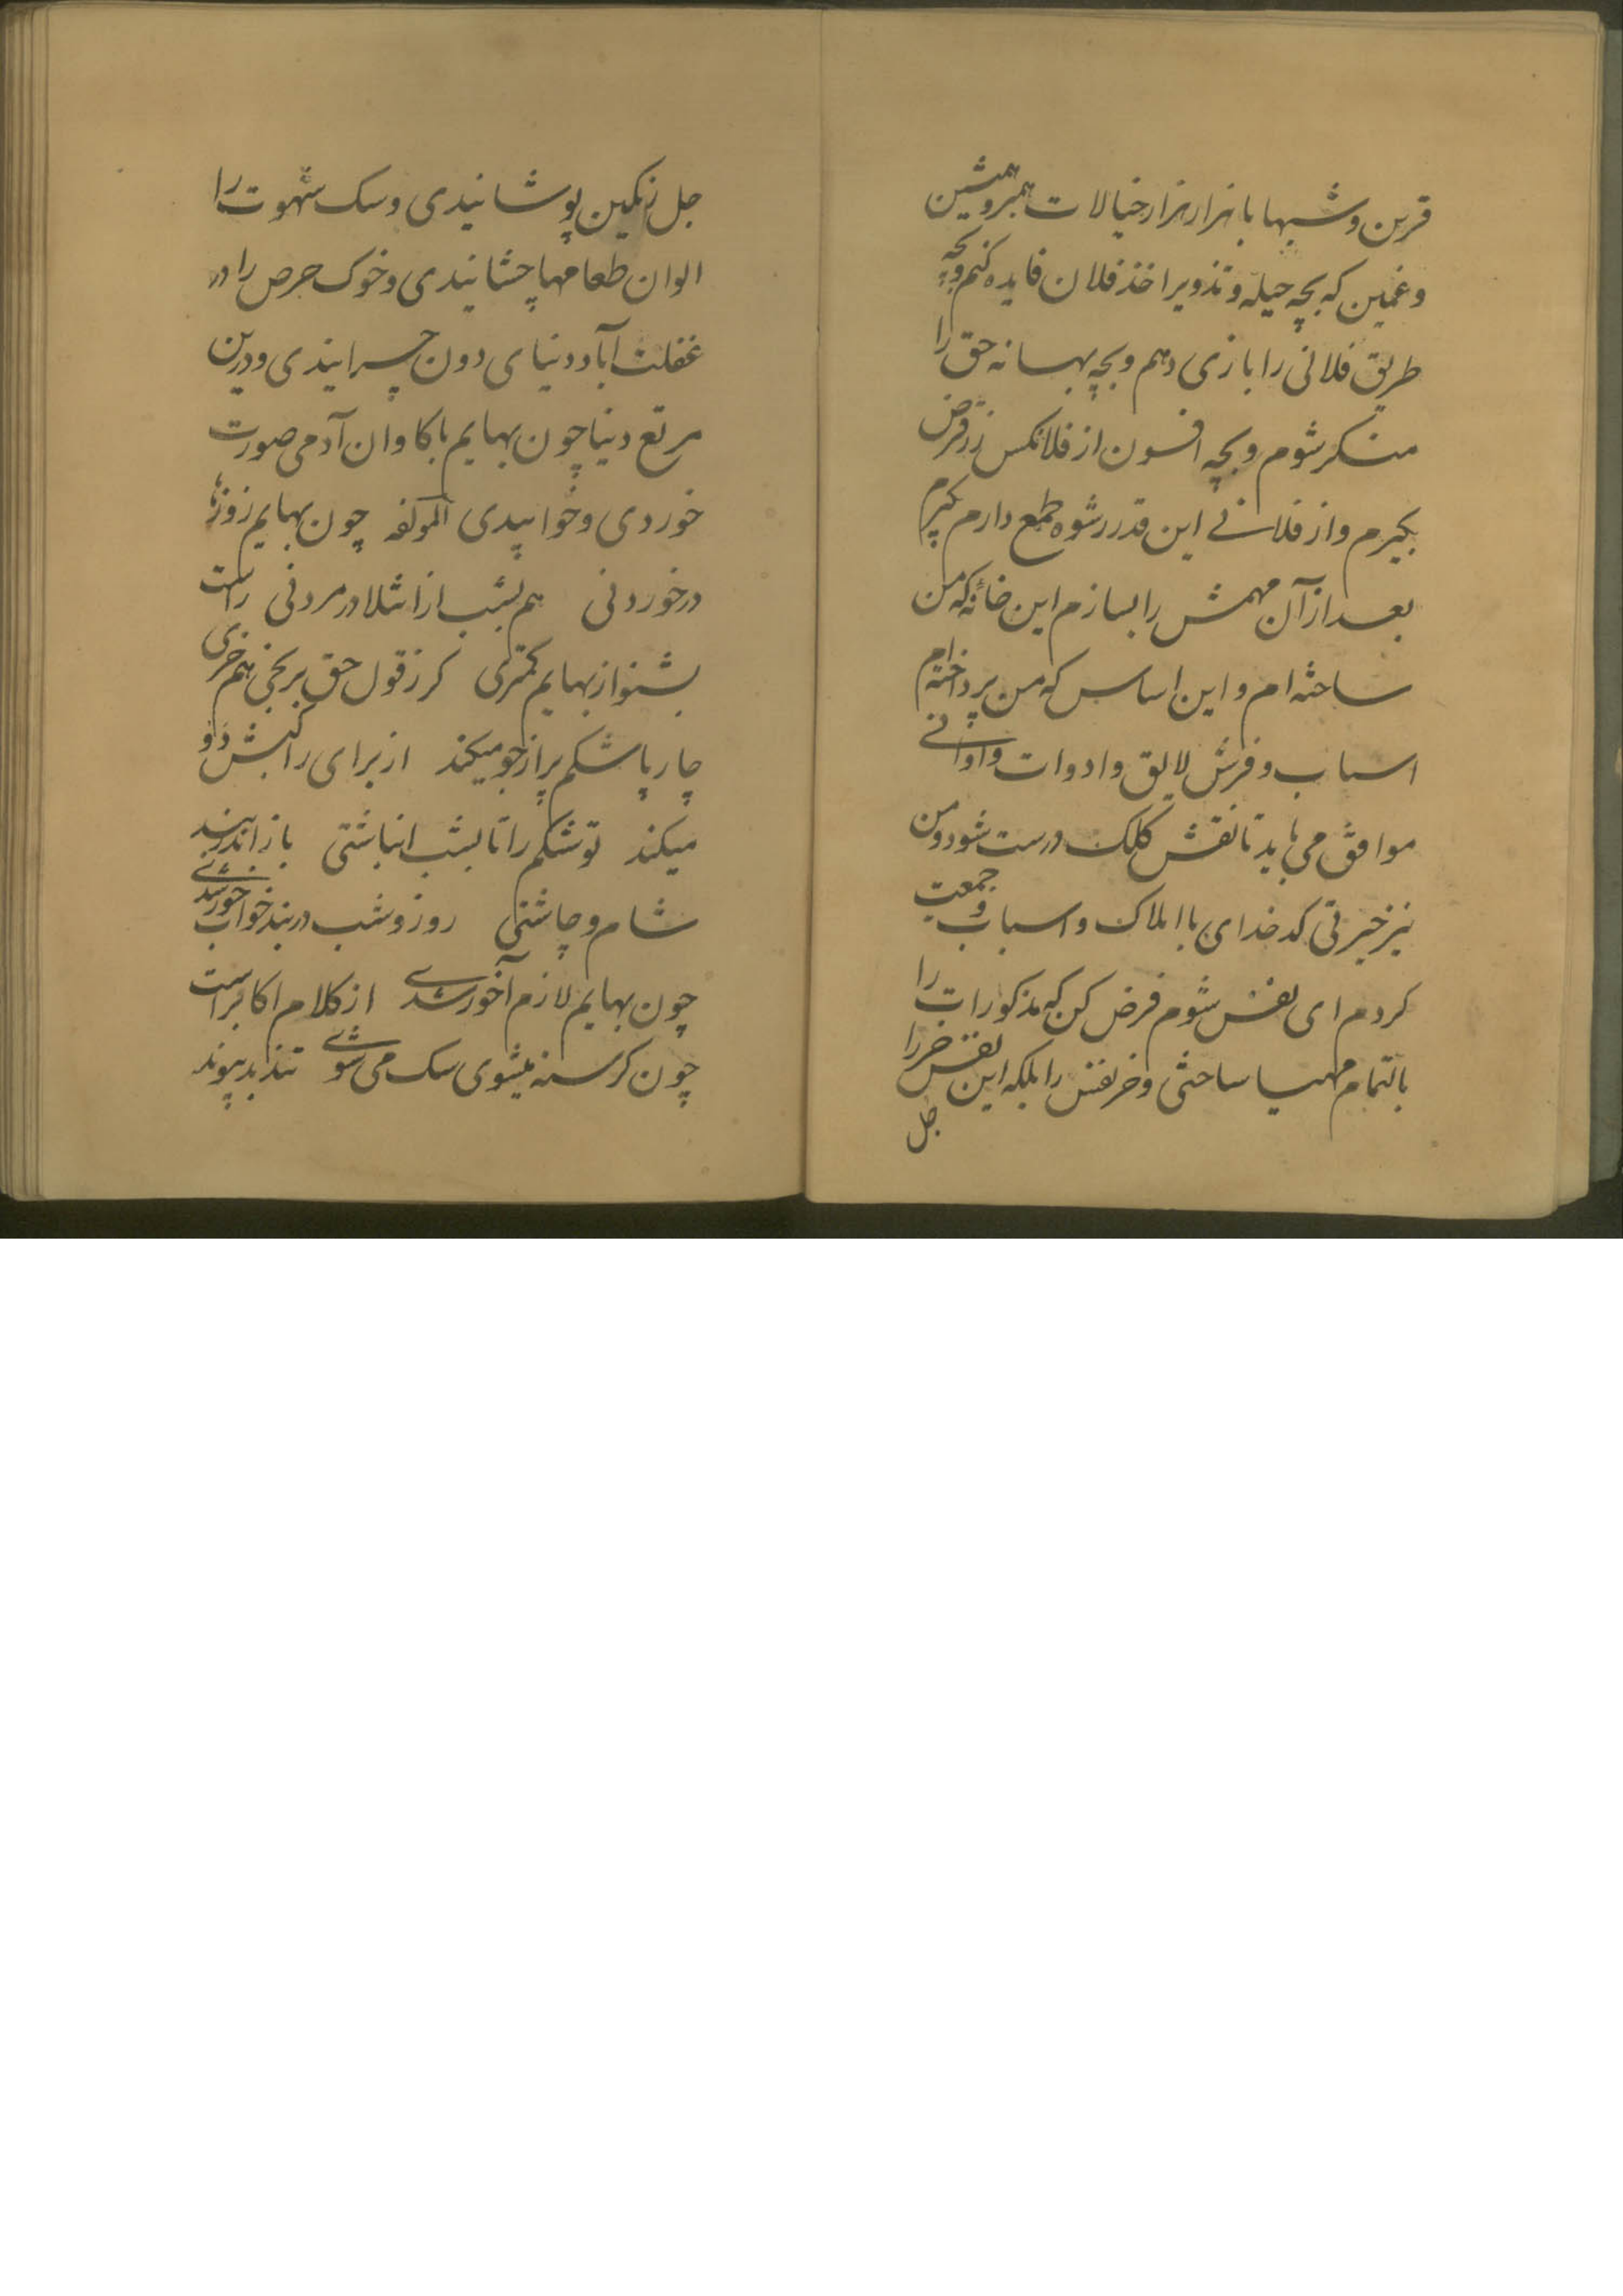 قرین و شبها با هزار هزار خیالات همبر و همنشین
و غمین که بچه حیله و تذویر اخذ فلان فایده کنم و بچه
طریق فلانی را بازی دهم و بچه بهانه حق را
منکر شوم و بچه افسون از فلانکس زر قرض
بگیرم و از فلانی این قدر رشوه طمع دارم بگیرم
بعد از آن مهمش را بسازم این خانه که من
ساخته ام و این اساس که من پرداخته ام
اسباب و فرش لایق و ادوات و اوانی
موافق می باید تا نقش کلک درست شود و من
نیز خیرتی کدخدای با املاک و اسباب و جمعیت
کردم ای نفس شوم فرض کن که مذکورات را
بالتمام مهیا ساختی و خر نفس را بلکه این نفس خر را
جل
جل رنگین پوشانیدی و سک شهوت را
الوان طعامها چشانیدی و خوک حرص را در
غفلت آباد دنیای دون چرانیدی و درین
مرتع دنیا چون بهایم باکاوان آدمی صورت
خوردی و خوابیدی المولفه چون بهایم روزها
در خوردنی هم بشب از امتلا در مردنی راست
بشنو از بهایم کمتری کر ز قول حق برنجی هم خری
چارپا شکم پر از جو میکند از برای راکبش دو دو
میکند تو شکم را تا بشب انباشتی باز اندر بند
شام و چاشتی روز و شب در بند خواب و خور شدی
چون بهایم لازم آخور شدی از کلام اکابر است
چون کرسنه میشوی سک می شوی تند بد پیوند